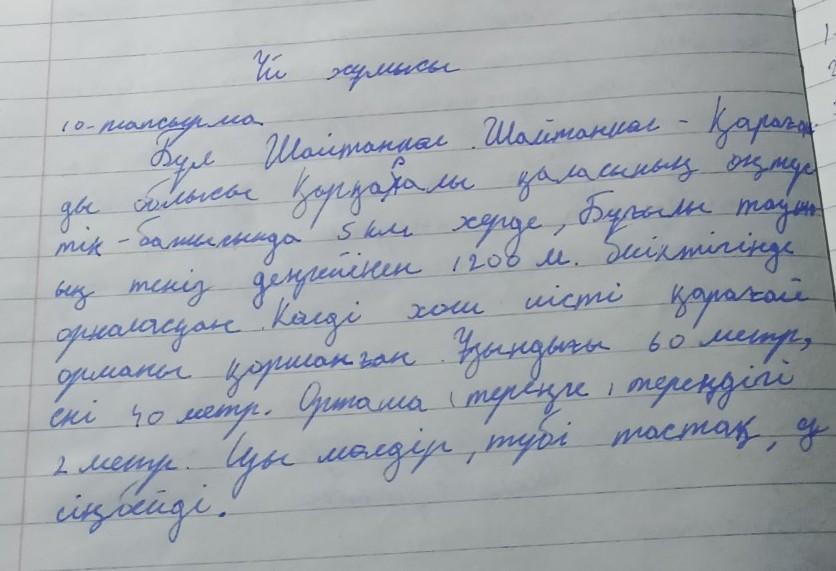 Үй жұмысы
10-тапсырма
Бұл Шайтанкөл. Шайтанкөл - Қараған
ды облысы Қарқаралы қаласының оңтүс
тік-батысында 5 км жерде, Бұғылы тауын
ың теңіз деңгейінен 1200 м. биіктігінде
орналасқан. Көлді хош иісті қарағай
орманы қоршаған. Ұзындығы 60 метр,
ені 40 метр. Орташа (тереңге) тереңдігі
2 метр. Суы мөлдір, түбі тастақ, су
сіңбейді.